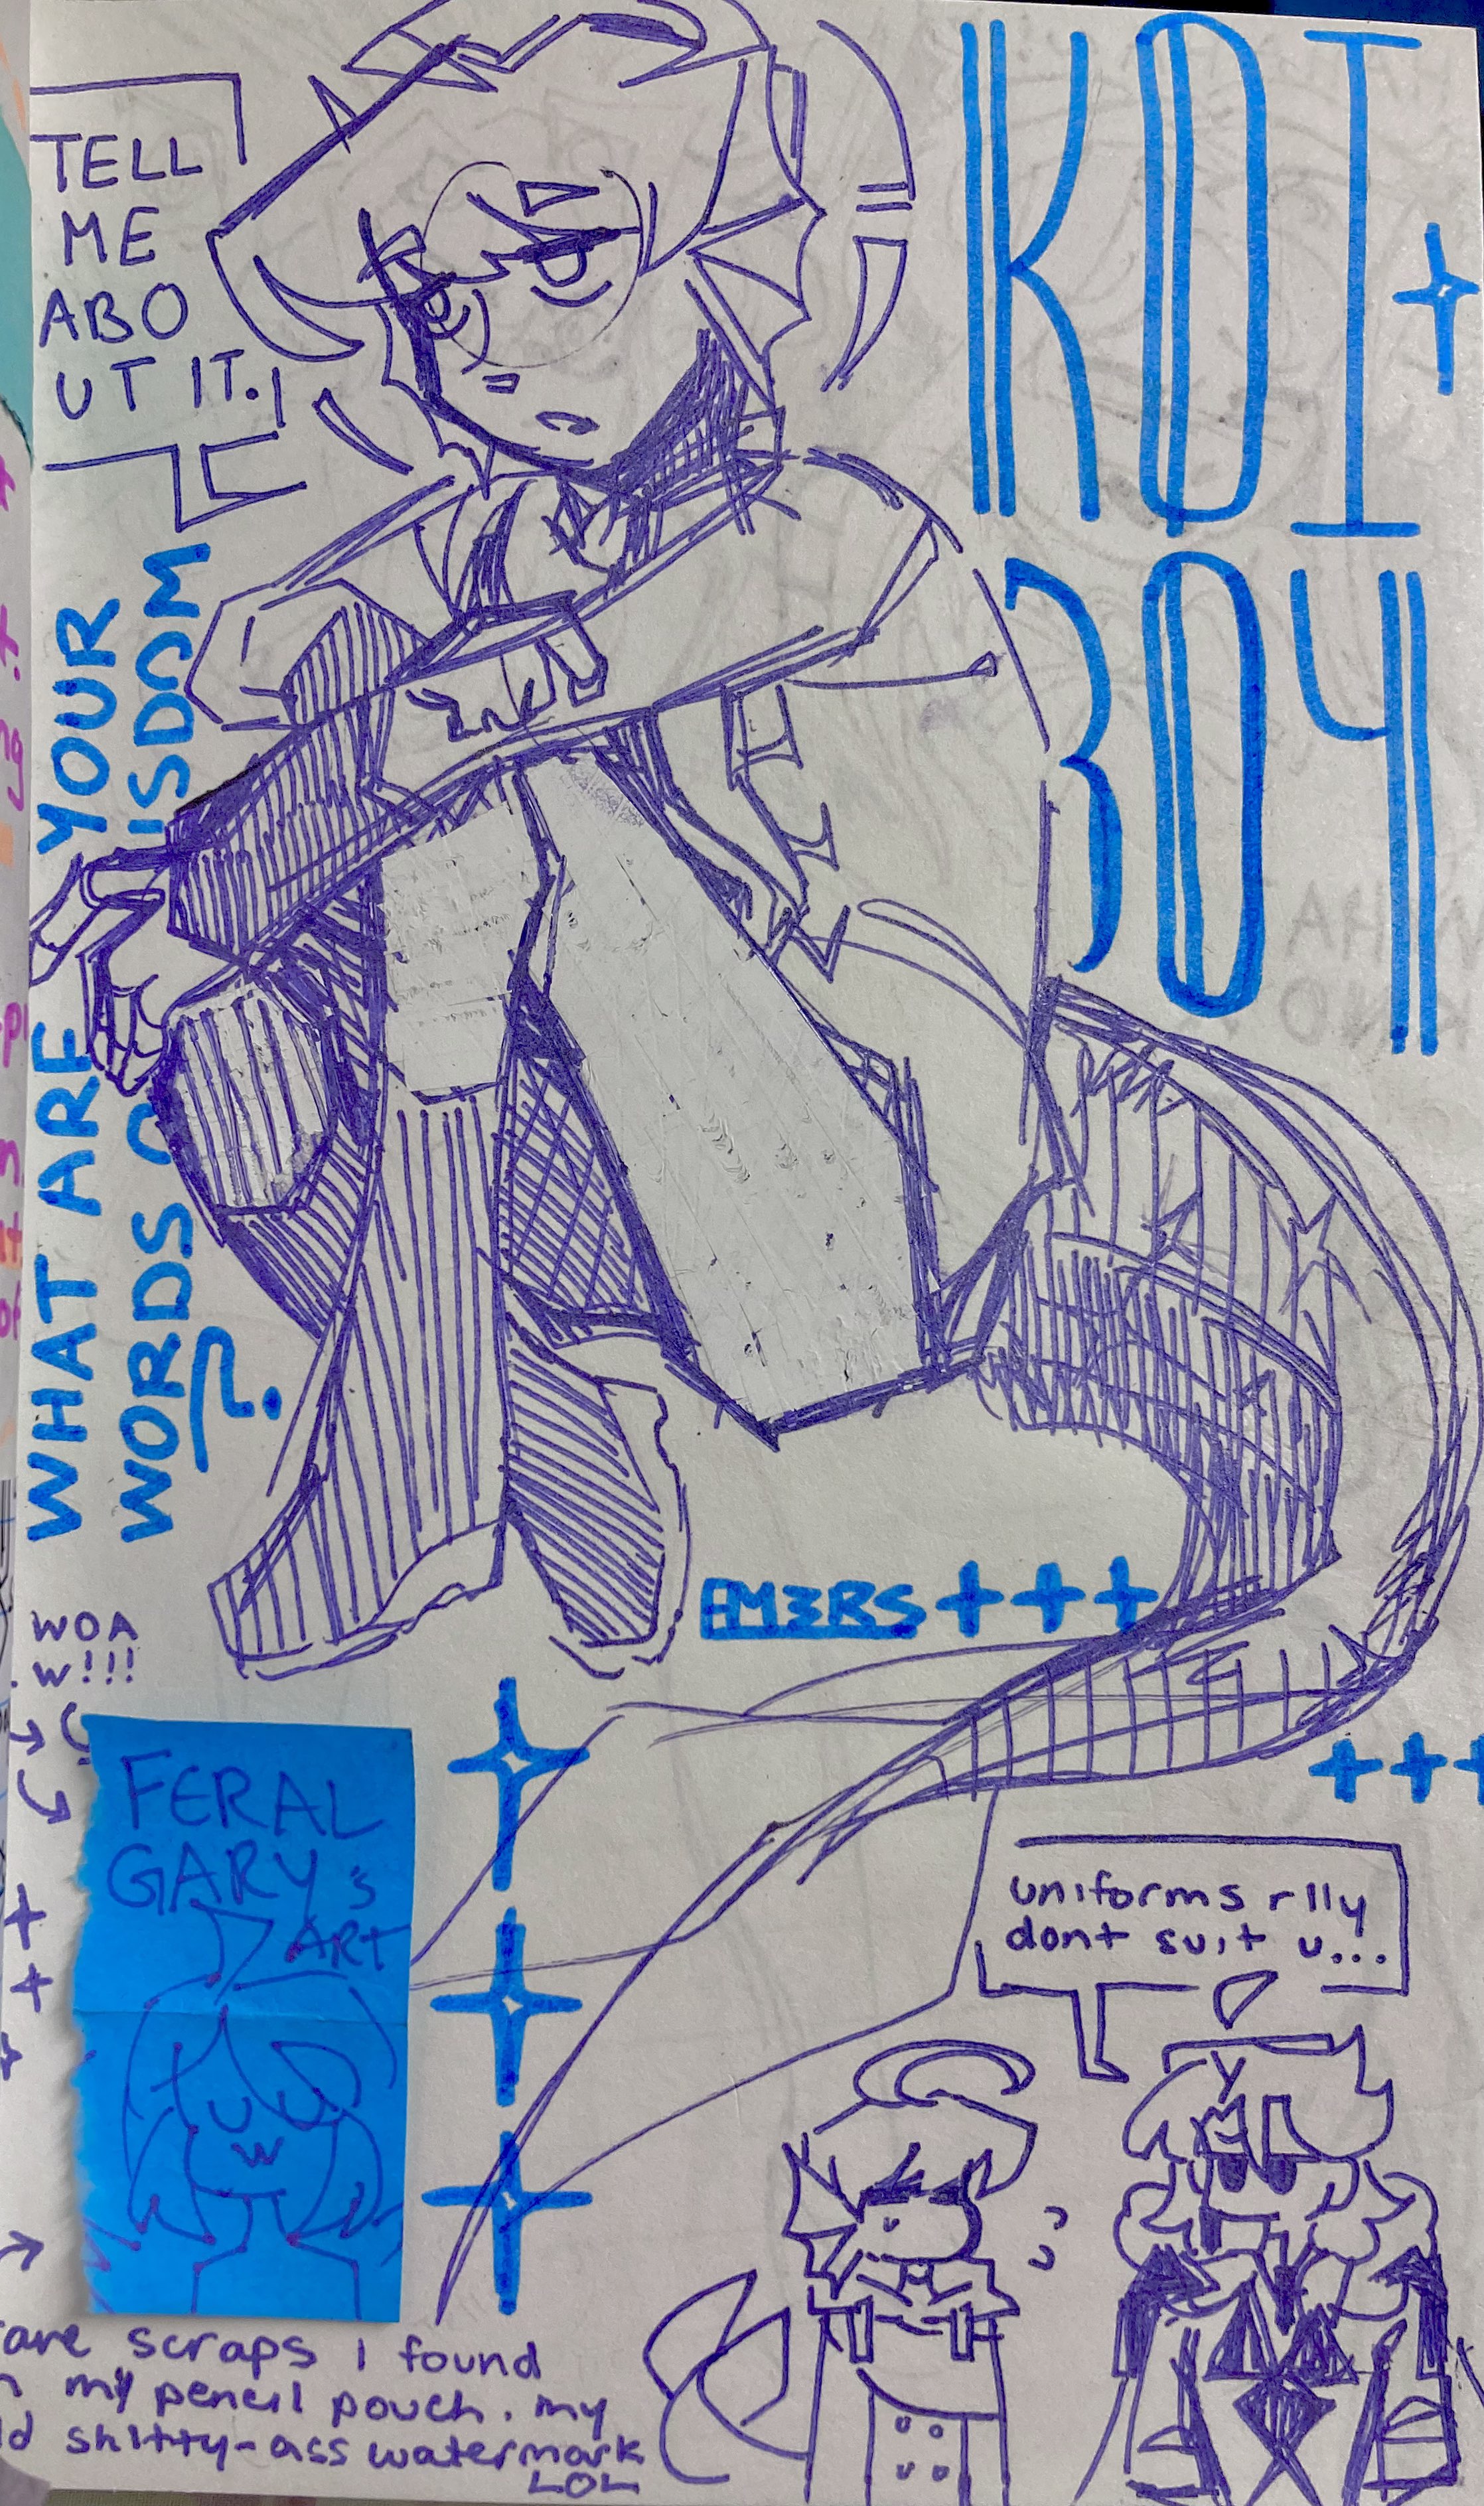 TELL
ME
ABO
UT IT.
KOI
304
WHAT ARE YOUR
WORDS OF WISDOM
?
EM3RS+++
WOA
W!!!
FERAL
GARY's
ART
+++
uniforms rlly
dont suit u...
scraps I found
my pencil pouch. my
shitty-ass watermark
LOL